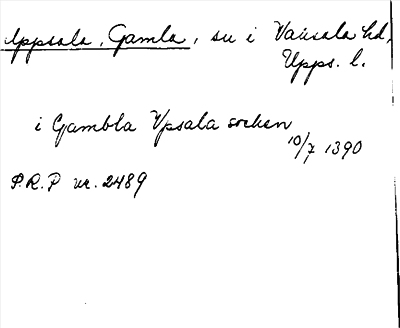 Uppsala, Gamla, sn i Vaksala hd,
Upps. l.
i Gambla Vpsala sochen
10/7 1390
P.R.P nr. 2489